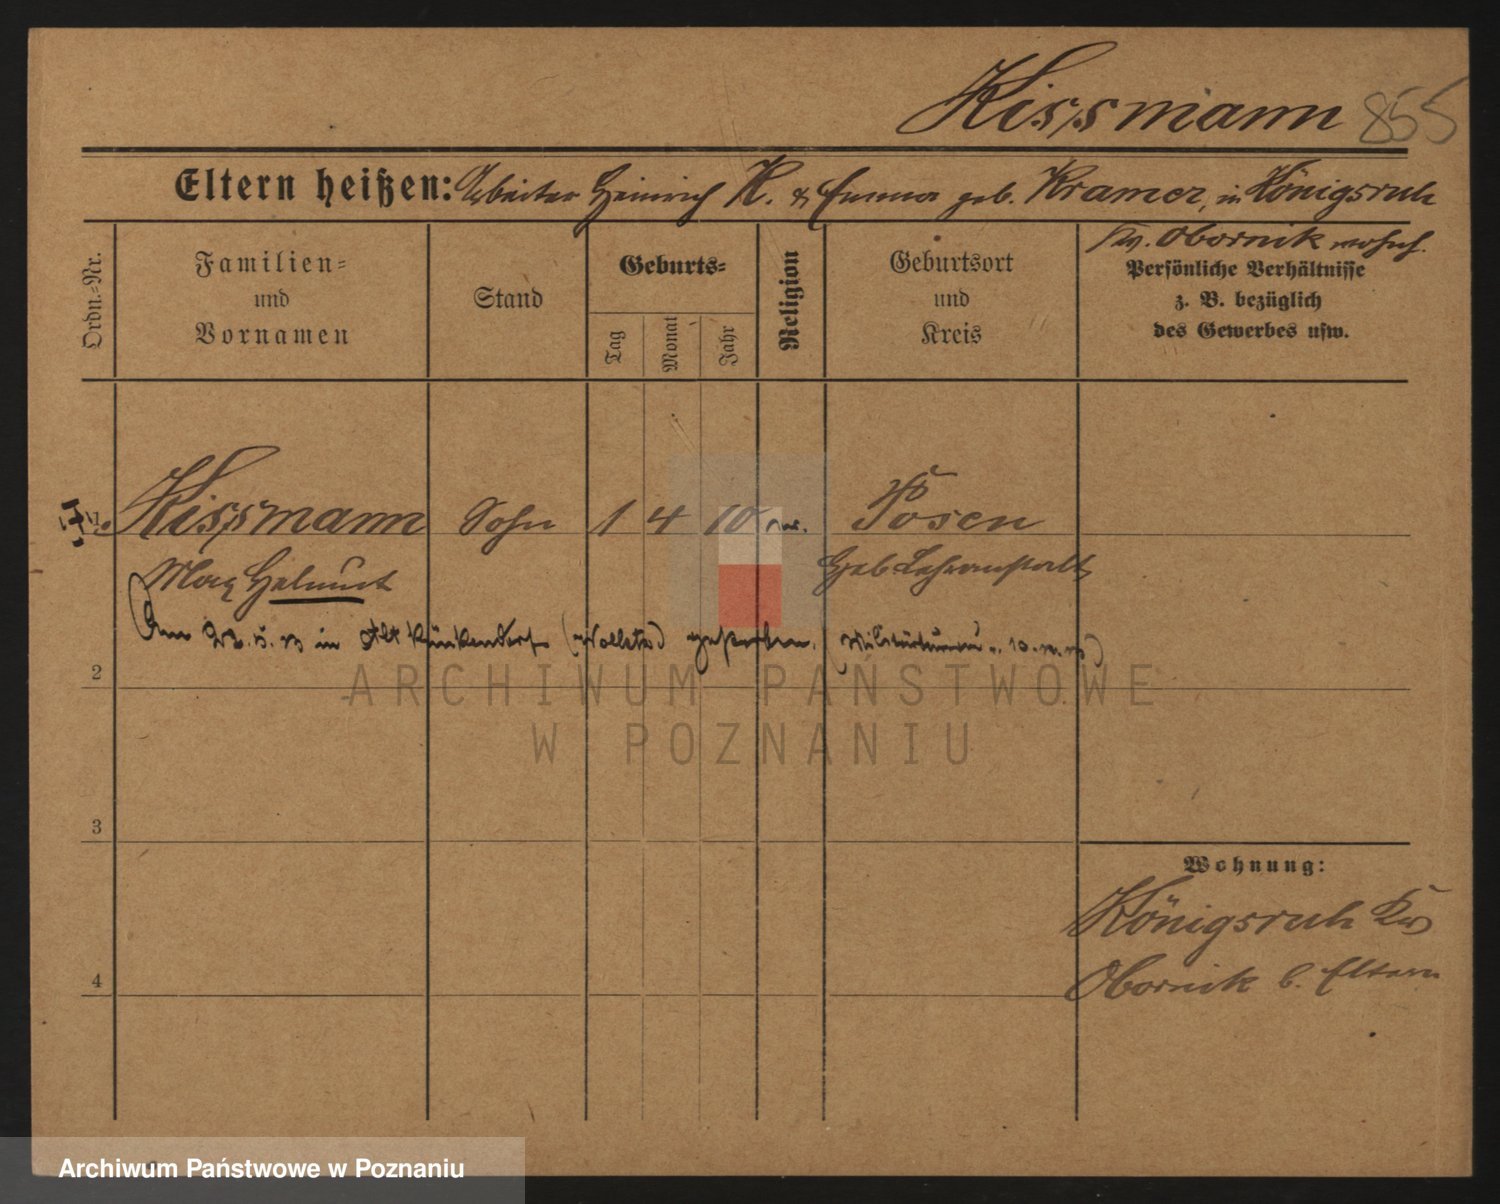 Kissmann 855
Eltern heißen: Arbeiter Heinrich K. & Emma geb. Kramer, in Königsruh
Kr. Obornik wohnh.
Ordn.-Nr.
Familien-
und
Vornamen
Stand
Geburts-
Tag
Monat
Jahr
Religion
Geburtsort
und
Kreis
Persönliche Verhältnisse
z. B. bezüglich
des Gewerbes usw.
1. Kissmann Sohn 1 4 10 ev. Posen
Max Helmut Geb Lehranstalt
Am in Alt gestorben.
2
ARCHIWUM PAŃSTWOWE
W POZNANIU
3
Wohnung:
Königsruh Krs
4
Obornik b. Eltern
Archiwum Państwowe w Poznaniu